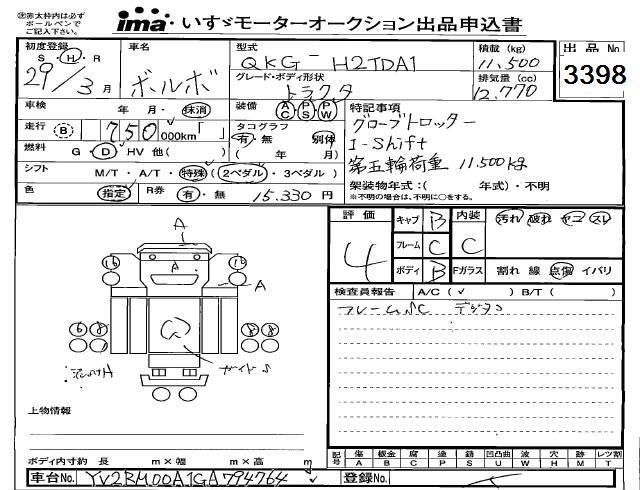 ◎赤太枠内は必ず
ボールペンで
ご記入下さい。
ima いすゞモーターオークション出品申込書
初度登録 車名 型式 積載 (kg) 出品No
S・H・R
29/3月 ボルボ QKG-H2TDA1 11,500
グレード・ボディ形状 排気量 (cc)
トラクタ 12,770
3398
車検 年 月・抹消 装備 AC PS PW 特記事項
走行 (B) 750,000km「 」 タコグラフ 有・無 別体
グローブトロッター
燃料 G・D・HV 他( ) ( 年 月)
I-Shift
シフト M/T・A/T・特殊(2ペダル・3ペダル)
第五輪荷重 11,500kg
色 指定 R券 有・無 15,330円
架装物年式:( 年式)・不明
※不明の場合は、不明に○をする。
評価 キャブ B 内装 汚れ 破れ ヤコ スレ
4 フレーム C C
ボディ B Fガラス 割れ 線 点傷 イバリ
検査員報告 A/C(✓ ) B/T( )
フレームSC
A
A
A
上物情報
ボディ内寸約 長 m×幅 m×高 m
記号 傷 板金 腐 塗 錆 凹凸曲 波 穴 跡 レンズ割
A B C P S U W H M T
車台No. YV2RM00A1GA794764 登録No.